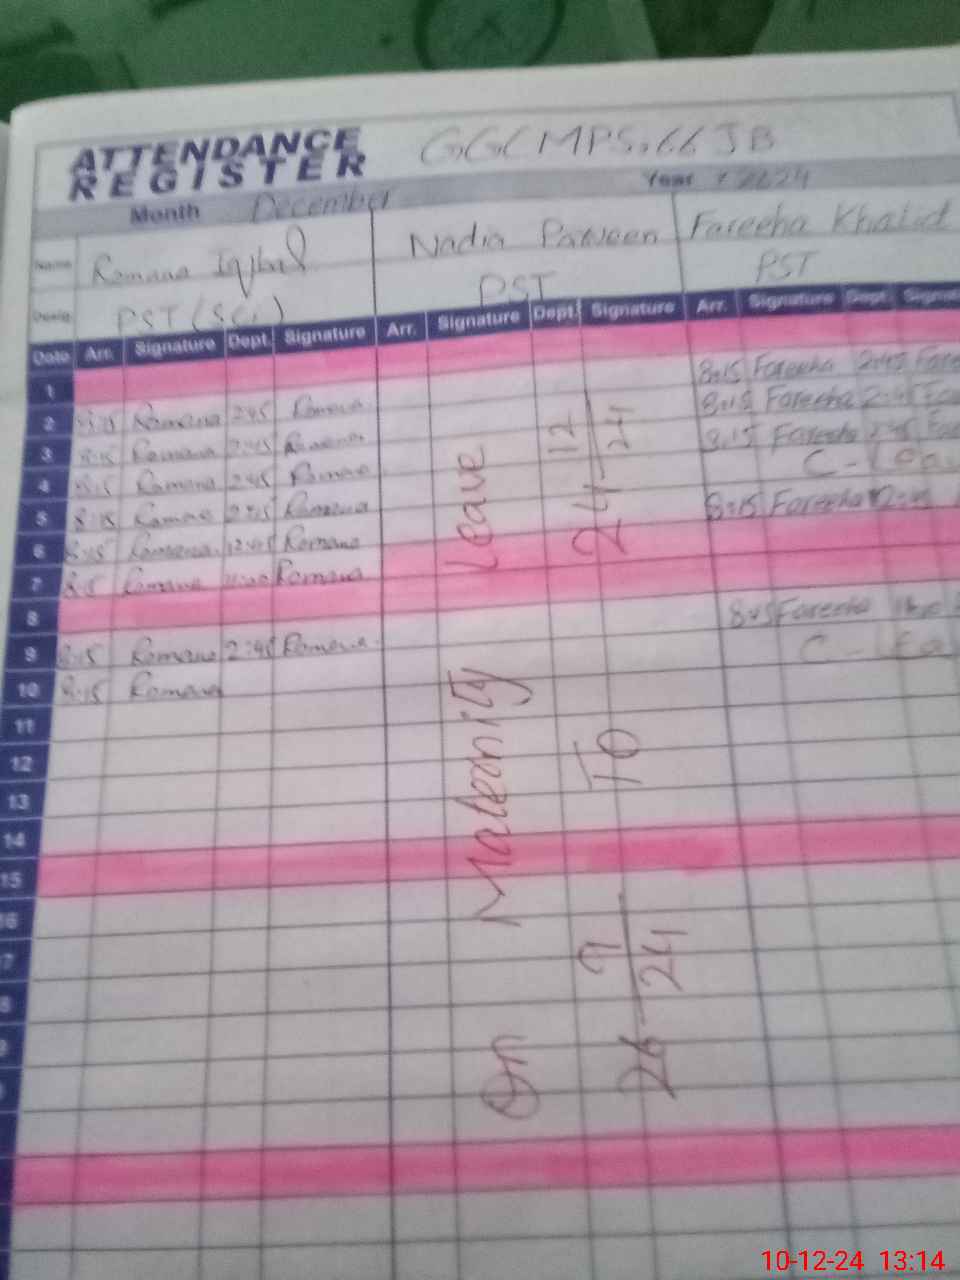 ATTENDANCE REGISTER
GGCMPS.66 JB
Month December
Year : 2024
Name Romana Iqbal Nadia Parveen Fareeha Khalid
Desig. PST (SCI) PST PST
Date Arr. Signature Dept. Signature Arr. Signature Dept. Signature Arr. Signature Dept.
1
2 8:15 Romana 2:45 Romana 8:15 Fareeha 2:45
3 8:15 Romana 2:45 Romana 8:15 Fareeha 2:45
4 8:15 Romana 2:45 Romana 8:15 Fareeha 2:45
5 8:15 Romana 2:45 Romana C-
6 8:15 Romana 12:45 Romana 8:15 Fareeha
7 8:15 Romana Romana
8
9 8:15 Romana 2:45 Romana 8:45 Fareeha
10 8:15 Romana C-
11
12
13
14
15
On Maternity Leave
26-9-24 To 24-12-24
10-12-24 13:14